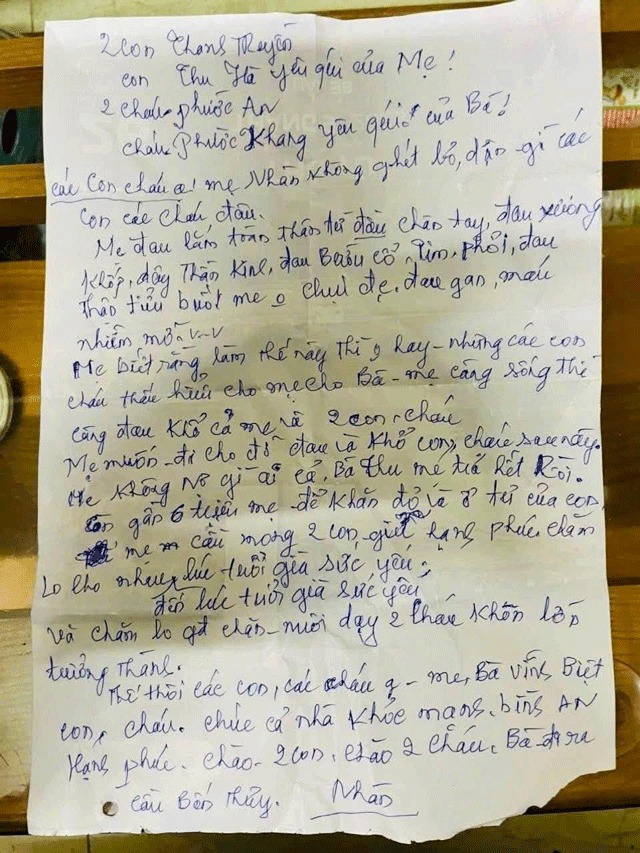 2 con Thanh Truyền
con Thu Hà yêu qúi của Mẹ!
2 cháu phước AN
cháu Phước Khang yêu qúi của Bà!
các con cháu ạ! mẹ Nhàn không ghét bỏ, dận gì các
con các cháu đâu.
Mẹ đau lắm toàn thân từ đầu chân tay, đau xương
khớp, dây Thần Kinh, đau Bướu cổ, Tim, phổi, đau
thận tiểu buốt mẹ o chịu đc, đau gan, máu
nhiễm mỡ v-v
Mẹ biết rằng làm thế này thì o hay - nhưng các con
cháu thấu hiểu cho mẹ cho Bà - mẹ càng sống thì
càng đau khổ cả mẹ và 2 con, cháu
Mẹ muốn đi cho đỡ đau và khổ con, cháu sau này.
Mẹ không nợ gì ai cả, Bà Thu mẹ trả hết Rồi.
Còn gần 6 triệu mẹ để khăn đỏ và ở tủ của con,
mẹ cầu mong 2 con giữ hạnh phúc chăm
Lo cho nhau, lúc tuổi già sức yếu,
đến lúc tuổi già sức yếu
và chăm lo gđ chăn - nuôi dạy 2 cháu khôn lớn
trưởng thành.
Thế thôi các con, các cháu - mẹ, Bà vĩnh Biệt
con, cháu. chúc cả nhà khỏe mạnh, bình AN
Hạnh phúc. chào 2 con, chào 2 cháu, Bà đi ra
cầu Bến Thủy. Nhàn